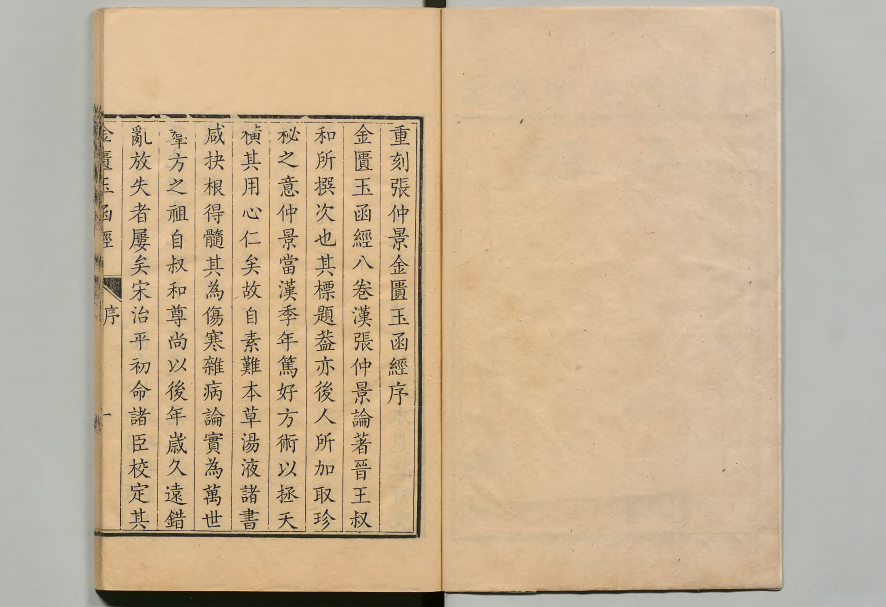 重刻張仲景金匱玉函經序
金匱玉函經八卷漢張仲景論著晉王叔
和所撰次也其標題葢亦後人所加取珍
祕之意仲景當漢季年篤好方術以拯天
橫其用心仁矣故自素難本草湯液諸書
咸抉根得髓其為傷寒雜病論實為萬世
羣方之祖自叔和尊尚以後年嵗久遠錯
亂放失者屢矣宋治平初命諸臣校定其
金匱玉函經
序
一